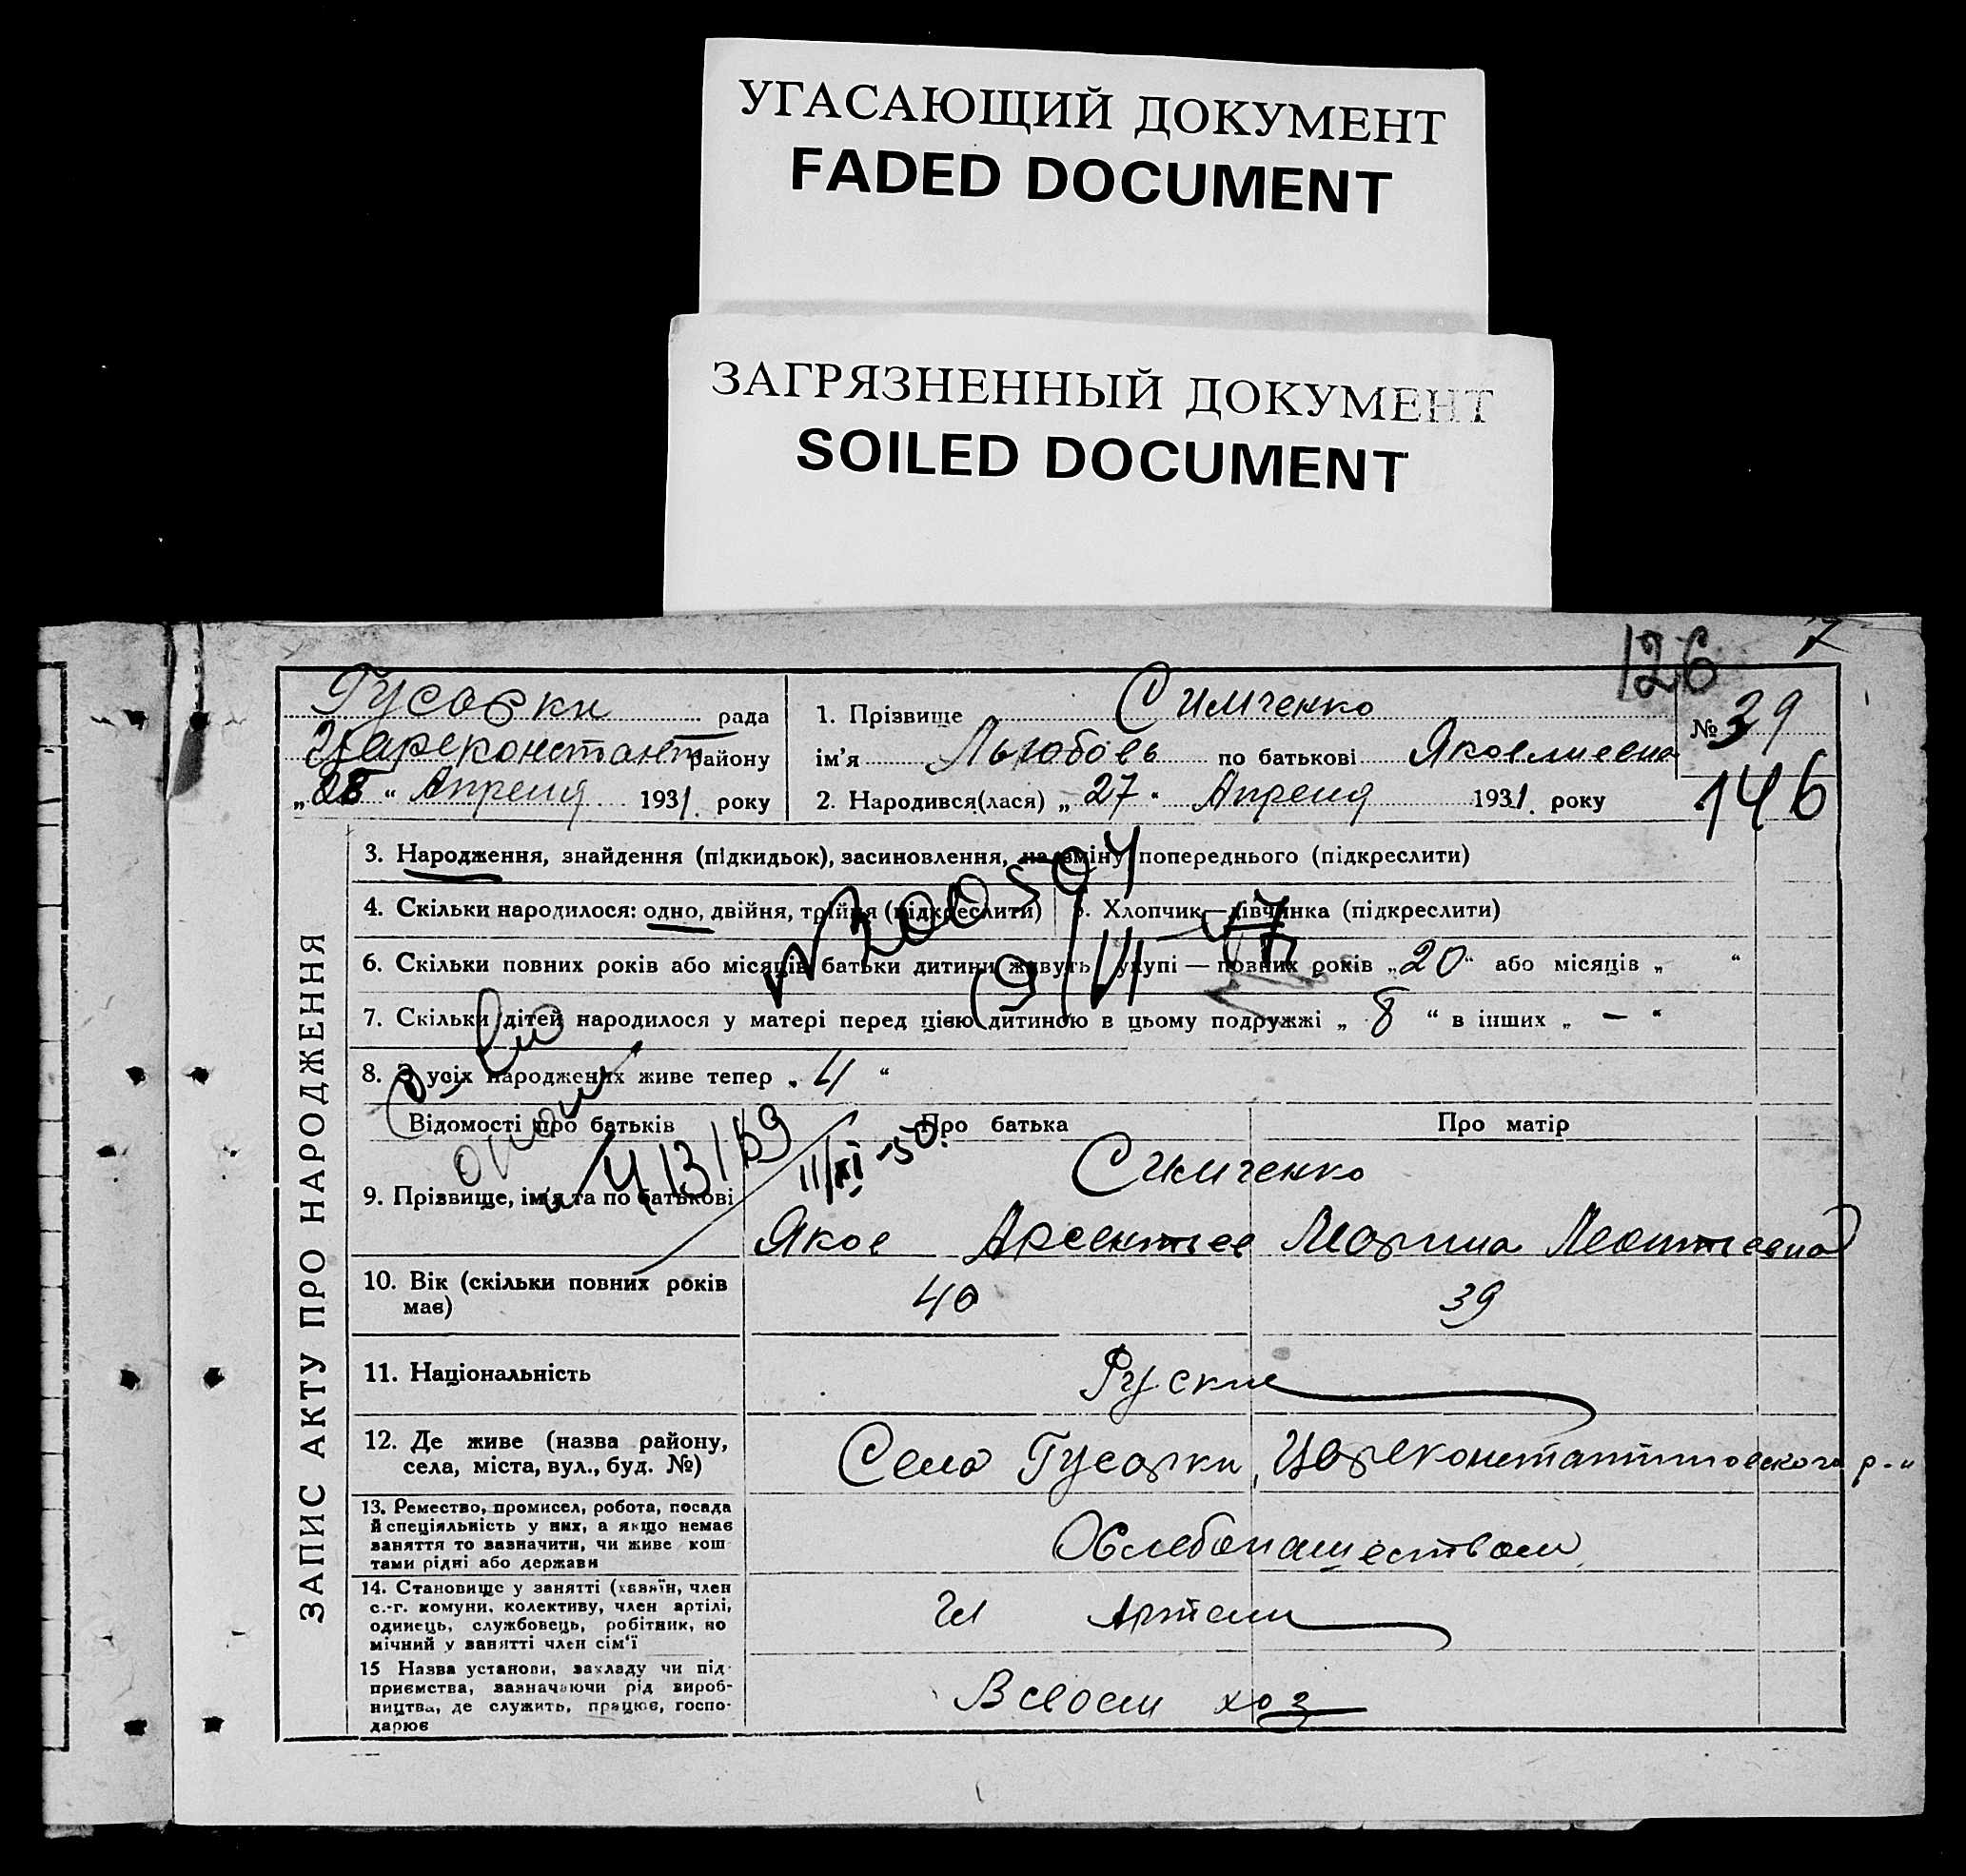 УГАСАЮЩИЙ ДОКУМЕНТ
FADED DOCUMENT
ЗАГРЯЗНЕННЫЙ ДОКУМЕНТ
SOILED DOCUMENT
126 7
Гусарки рада
Цареконстант району
„28“ Апреля 1931. року
1. Прізвище Симченко
ім'я Льюбовь по батькові Яковлиевна
2. Народився(лася) „27“ Апреля 1931. року
№ 39
146
ЗАПИС АКТУ ПРО НАРОДЖЕННЯ
3. Народження, знайдення (підкидьок), засиновлення, на зміну попереднього (підкреслити)
4. Скільки народилося: одно, двійня, трійня (підкреслити) 5. Хлопчик—дівчинка (підкреслити)
6. Скільки повних років або місяців батьки дитини живуть укупі — повних років „20“ або місяців „ “
7. Скільки дітей народилося у матері перед цією дитиною в цьому подружжі „ 8 “ в інших „ — “
8. З усіх народжених живе тепер „ 4 “
Відомості про батьків Про батька Про матір
11/XI-50.
9. Прізвище, ім'я та по батькові Симченко
Яков Арсентьев Марина Леонтьевна
10. Вік (скільки повних років має) 40 39
11. Національність Руские
12. Де живе (назва району, села, міста, вул., буд. №) Село Гусарки, Цареконстантиновского р-н
13. Ремество, промисел, робота, посада
й спеціяльність у них, а якщо немає
заняття то зазначити, чи живе кош
тами рідні або держави
Охлебопашеством
14. Становище у занятті (хазяїн, член
с.-г. комуни, колективу, член артілі,
одинець, службовець, робітник, по
мічний у занятті член сім'ї
Чл Артели
15 Назва установи, закладу чи під-
приємства, зазначаючи рід вироб-
ництва, де служить, працює, госпо-
дарює
В своем хоз